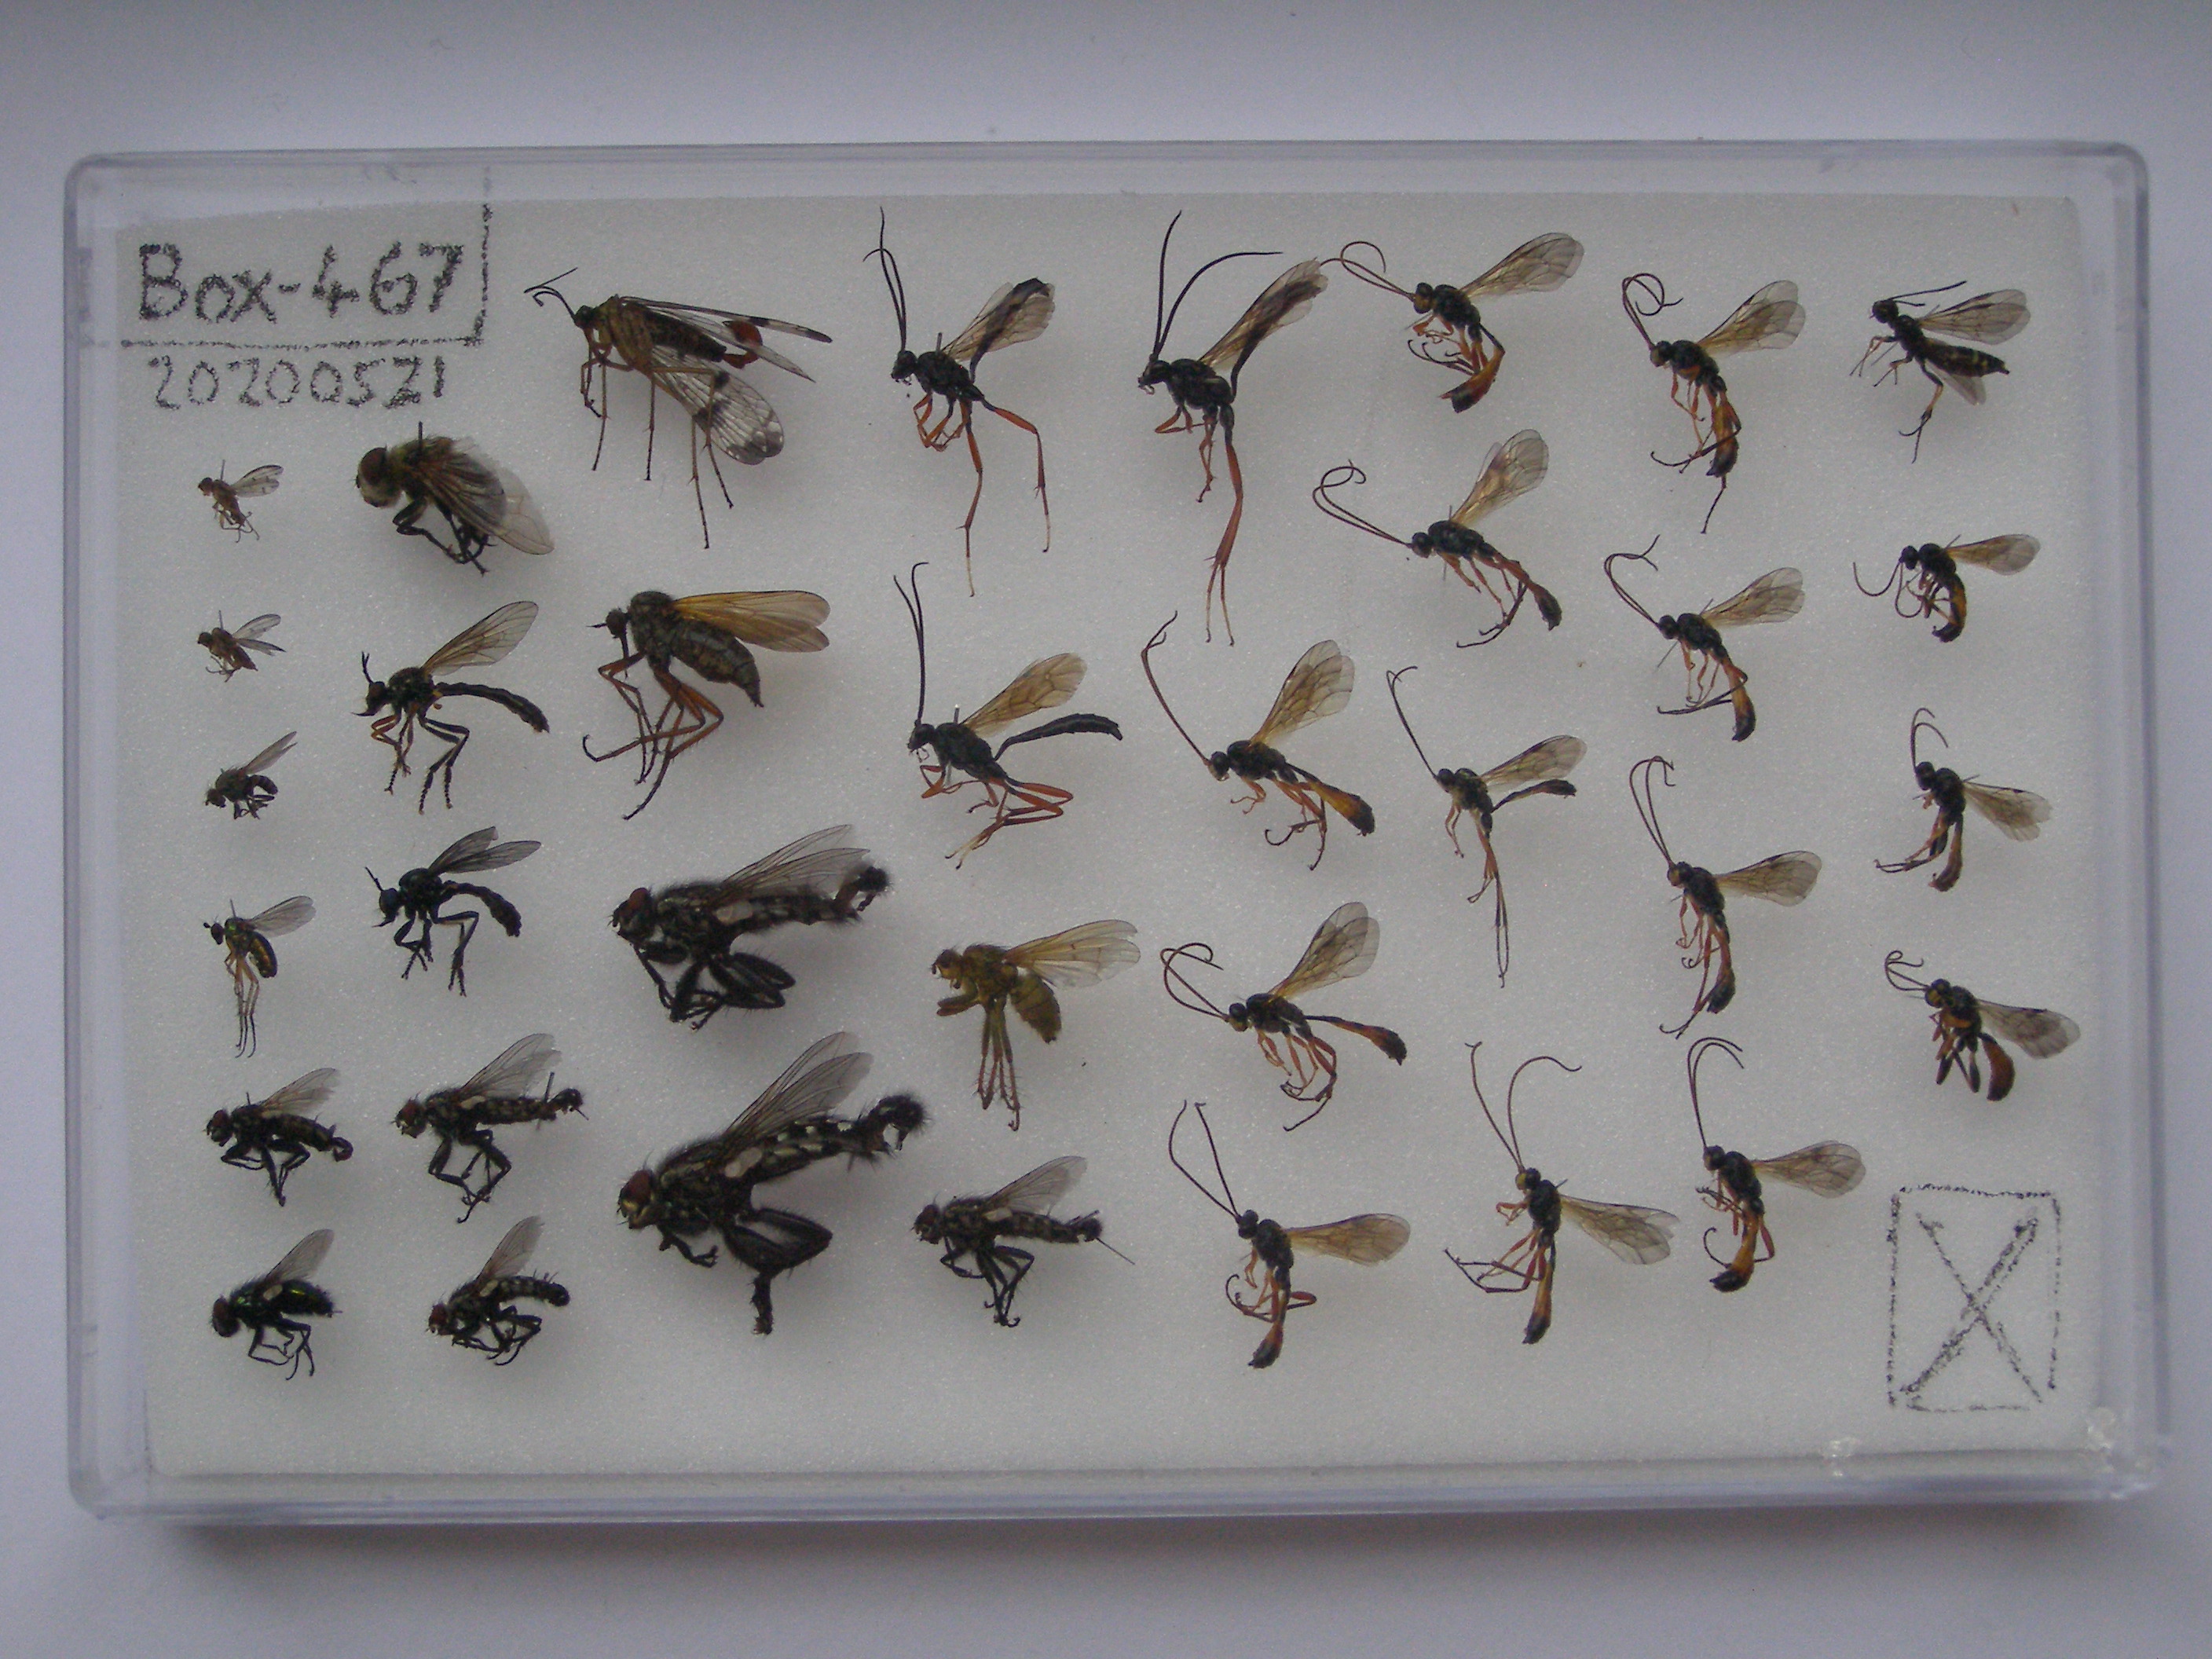 Box-467
20200521
X